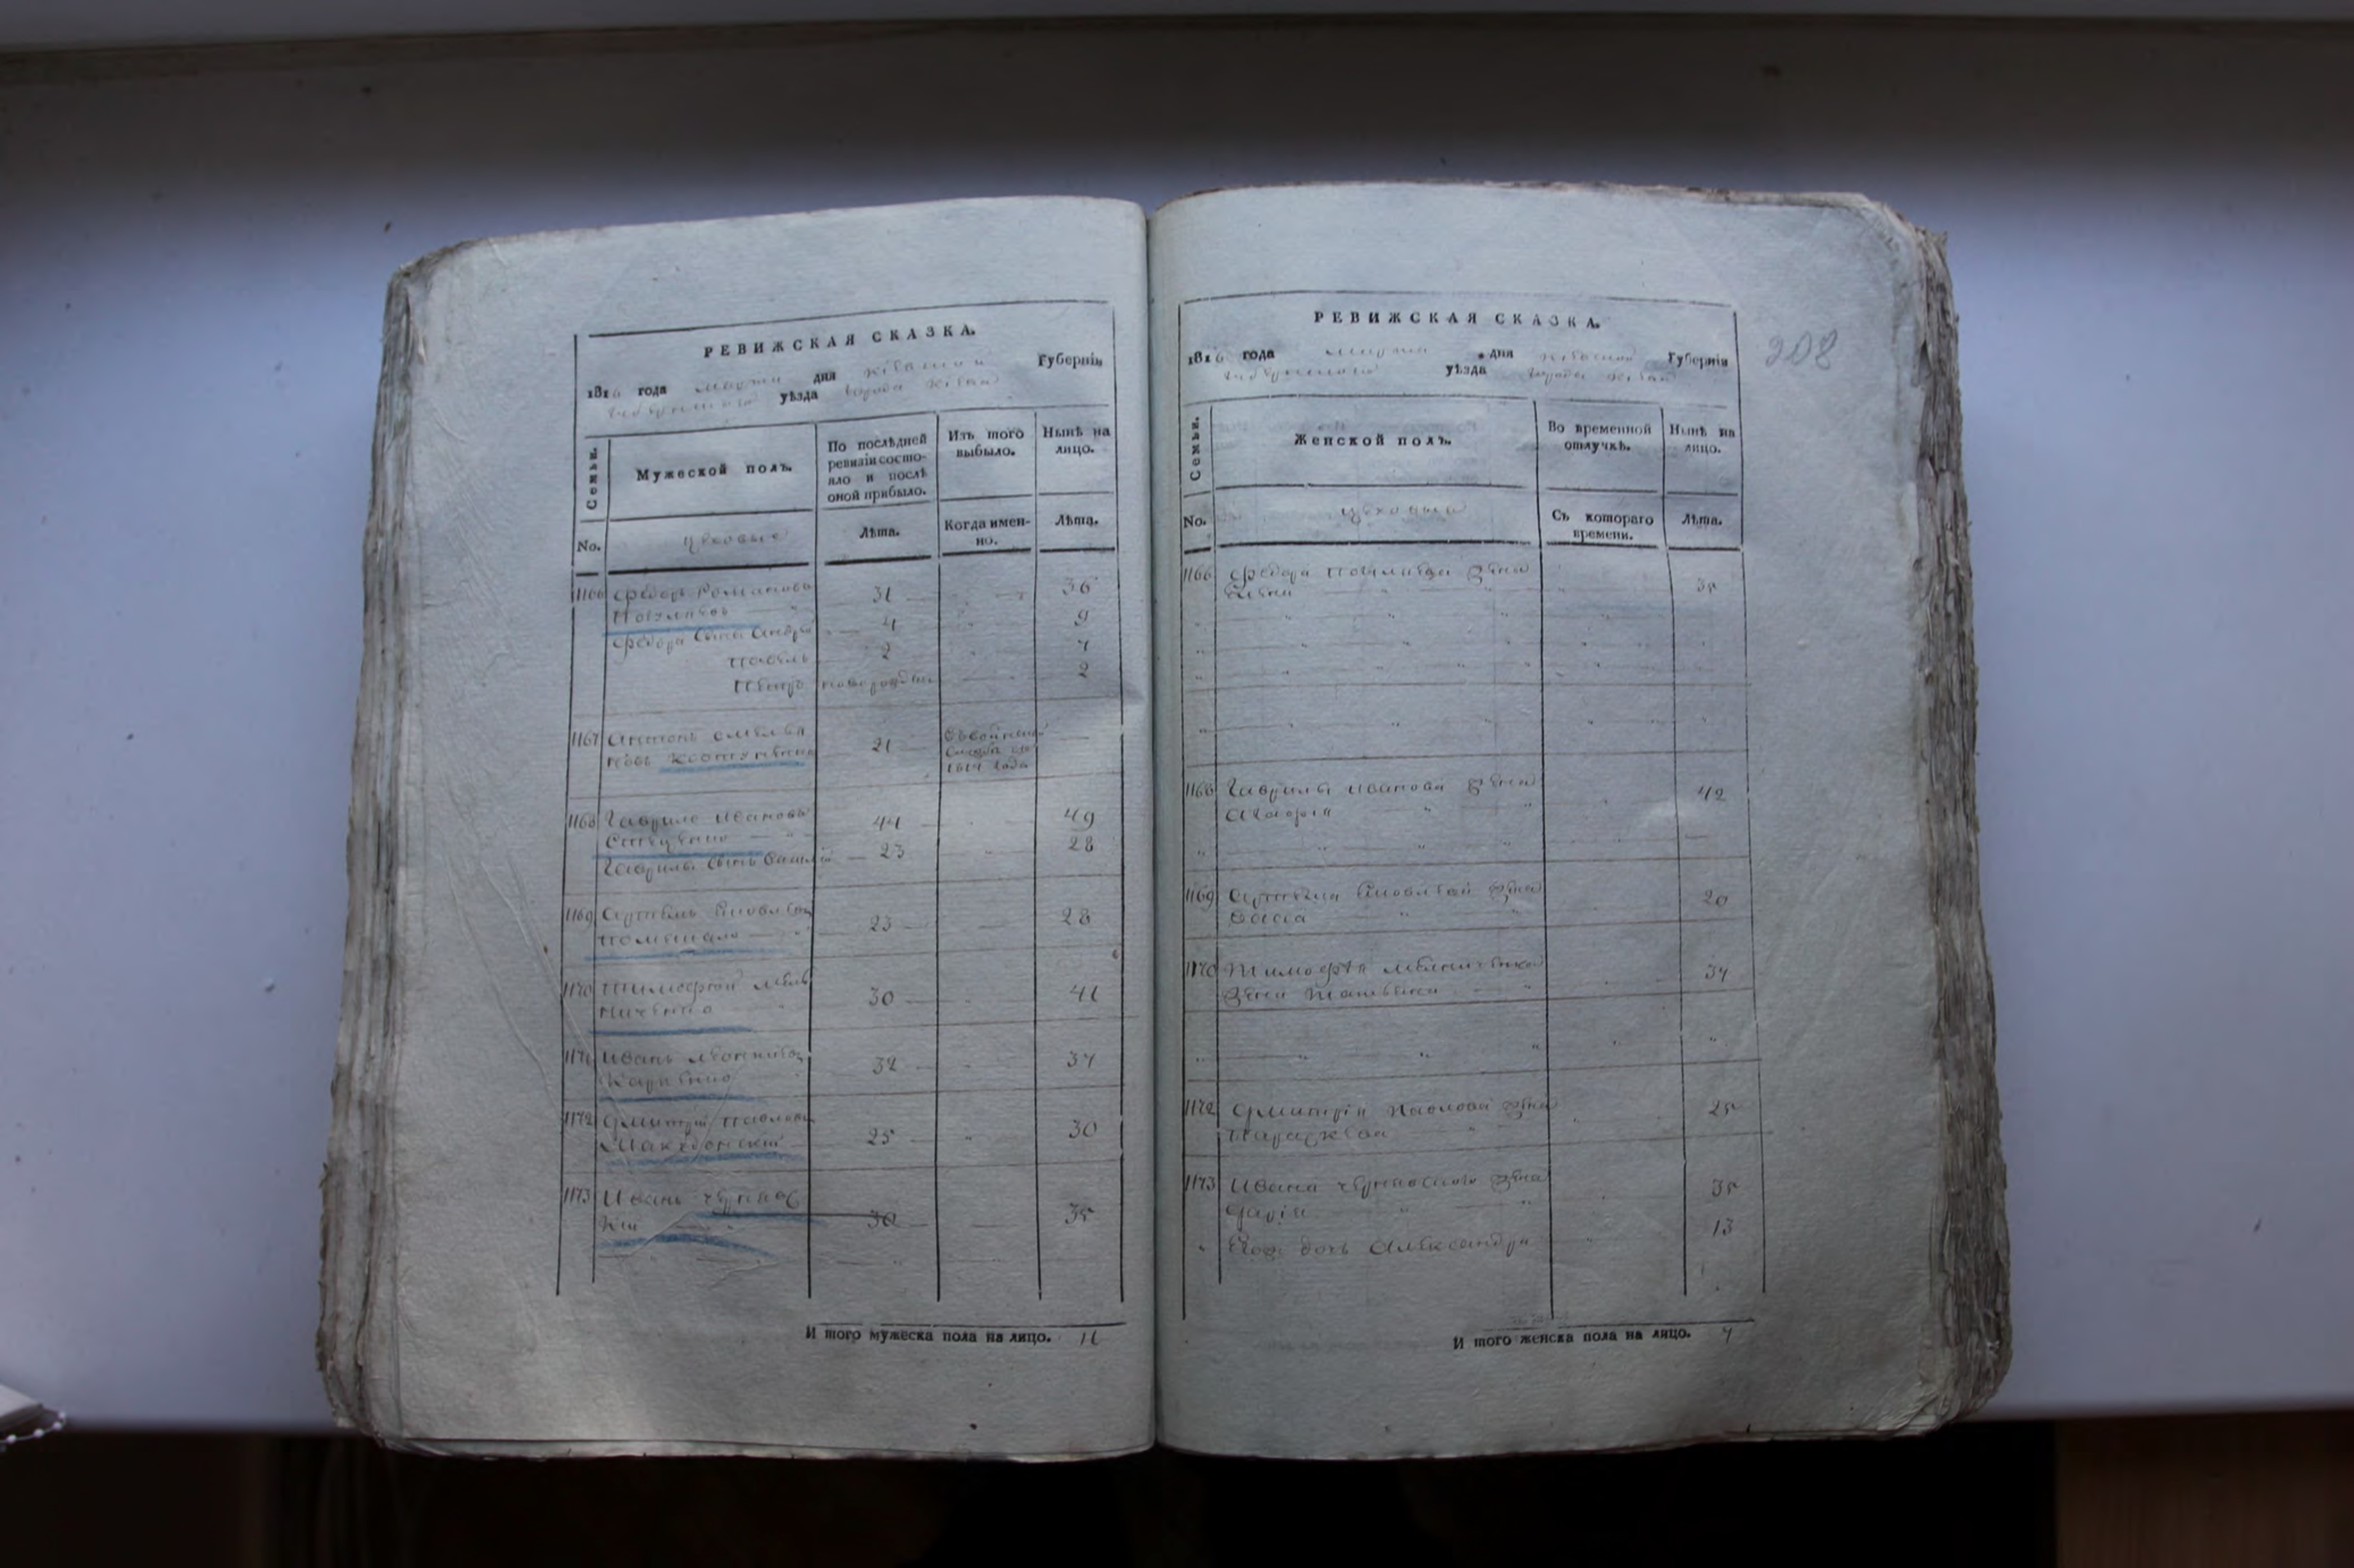 РЕВИЖСКАЯ СКАЗКА.
1816 года марта дня Кіевской Губерніи
уѣзда города Кіева
Семьи.
Мужеской полъ.
По послѣдней
ревизіи состо-
яло и послѣ
оной прибыло.
Изъ того
выбыло.
Нынѣ на
лицо.
No.
цеховые
Лѣта.
Когда имен-
но.
Лѣта.
1166 Федоръ Романовъ 31 36
Федора сынъ Андрей 4 9
Павелъ 2 7
Петръ новорожден 2
1167 Антонъ Емелья
новъ 21
1814 года
1168 Гаврило Ивановъ 44 49
Стеценко
Гаврилы сынъ Василій 23 28
1169 Артемъ Яковлевъ 23 28
1170 Тимофей Мель
ниченко 30 41
1171 Иванъ Леонтіевъ 32 37
Карпенко
1172 Дмитрій Павловъ 25 30
Македонскій
1173 Иванъ Чернявс
кій 30 35
И того мужеска пола на лицо. 11
РЕВИЖСКАЯ СКАЗКА.
1816 года марта дня Кіевской Губерніи
уѣзда города Кіева
208
Семьи.
Женской полъ.
Во временной
отлучкѣ.
Нынѣ на
лицо.
No.
цеховые
Съ котораго
времени.
Лѣта.
1166 Федора жена 35
1168 Гаврилы Иванова жена 42
Агафія
1169 Артема Яковлева жена 20
Васса
1170 Тимофея Мельниченка 37
жена Татьяна
1172 Дмитрія Павлова жена 25
Параскева
1173 Ивана Чернявского жена 35
Дарія
Его дочь Александра 13
И того женска пола на лицо. 7